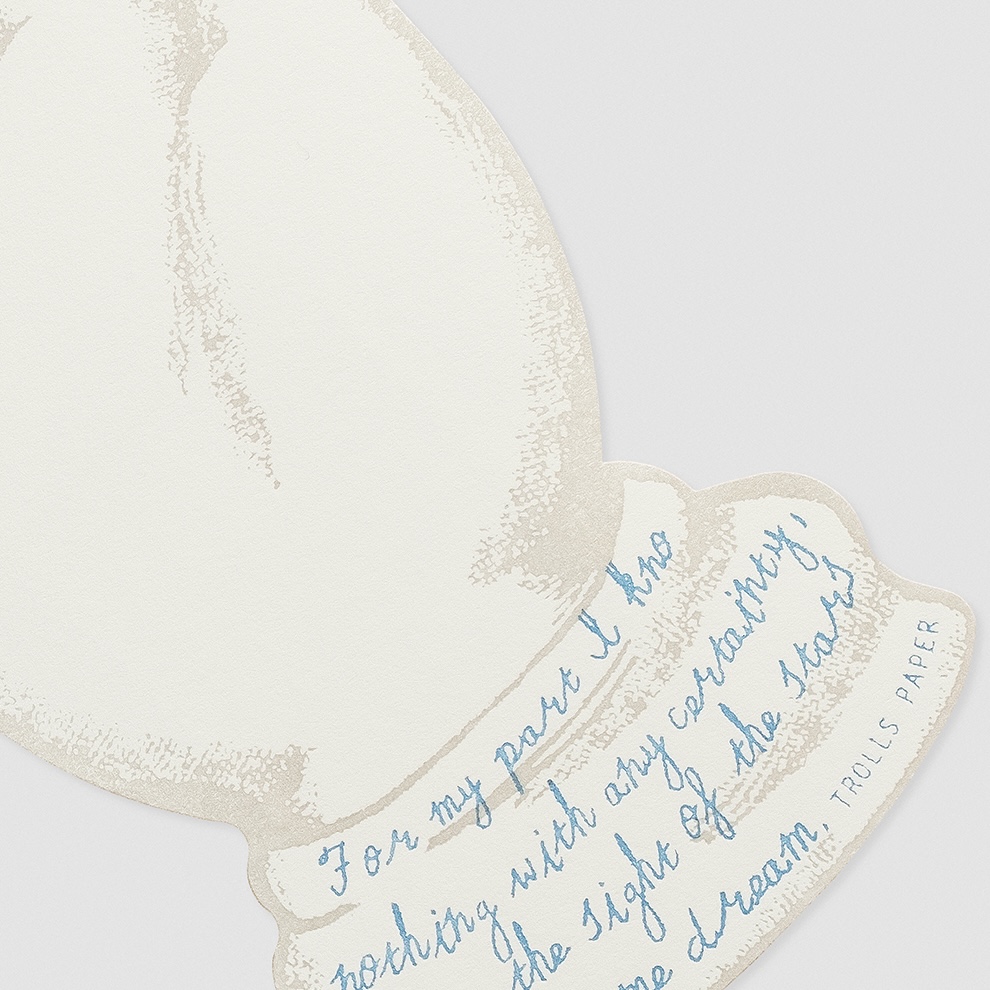 For my part I kno
nothing with any certainty,
the sight of the stars
me dream.
TROLLS PAPER